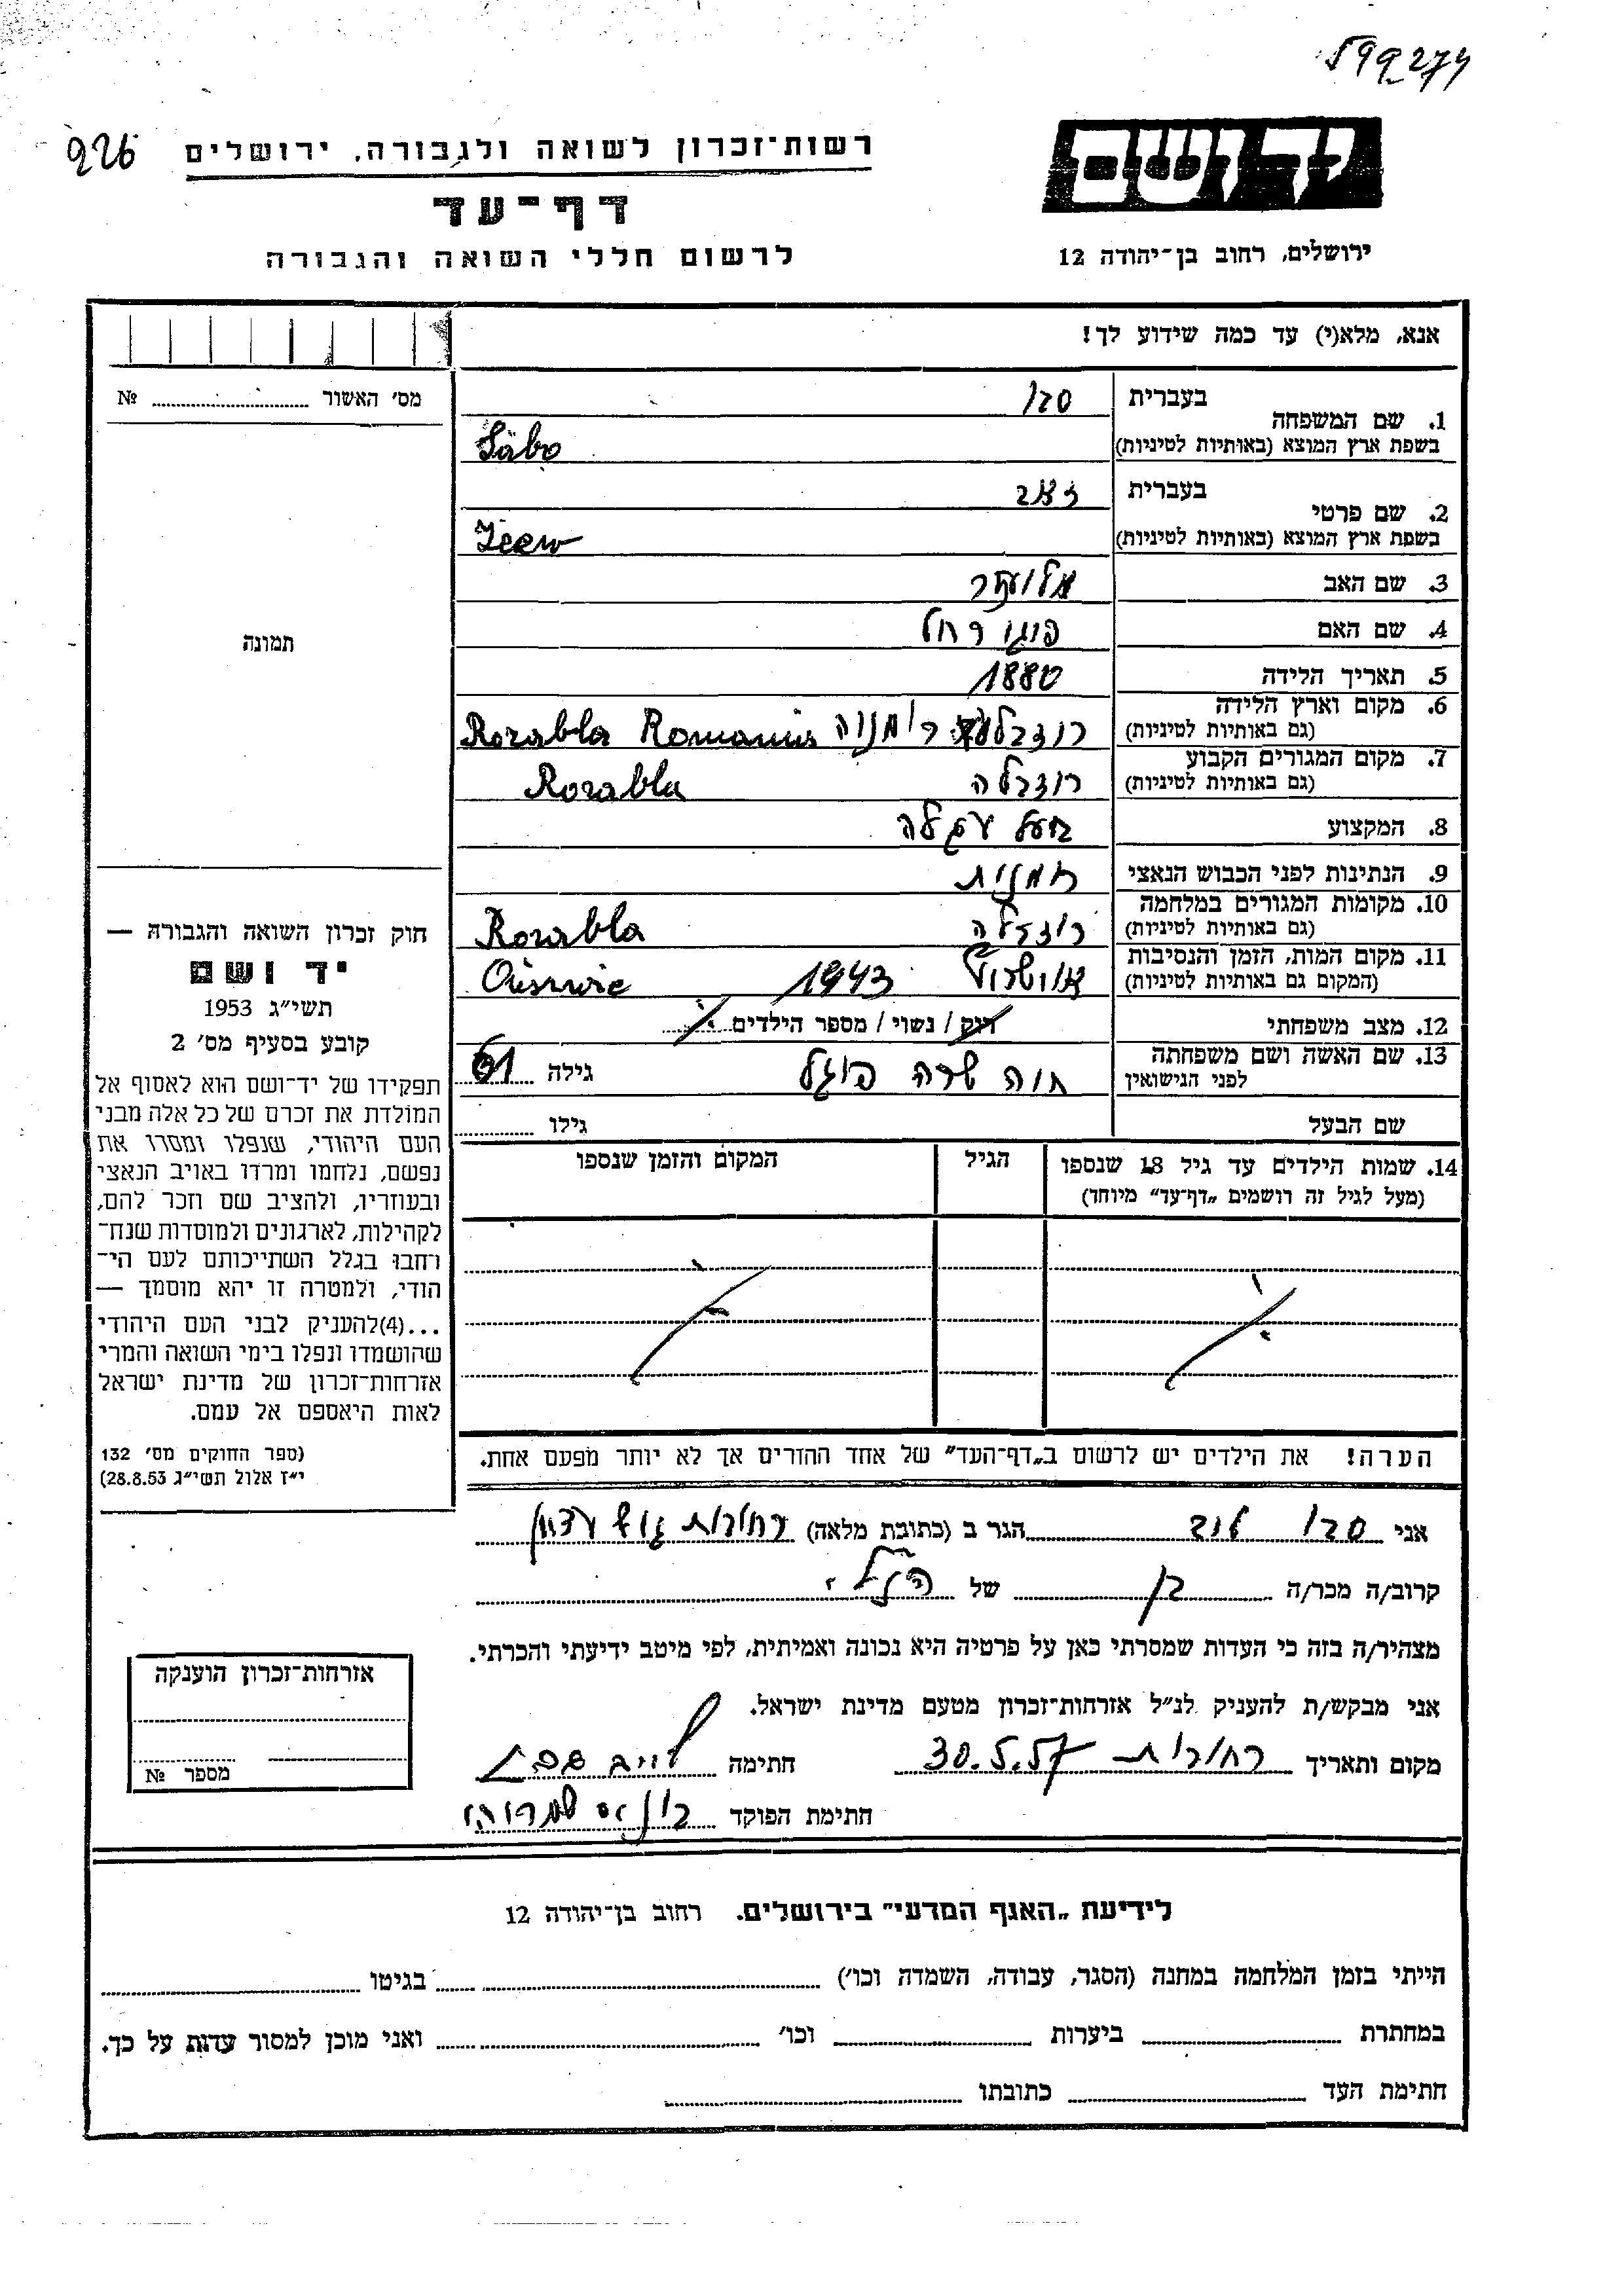 599274
926
רשות־זכרון לשואה ולגבורה, ירושלים
יד ושם
דף־עד
לרשום חללי השואה והגבורה
ירושלים, רחוב בן־יהודה 12
אנא, מלא(י) עד כמה שידוע לך!
מס׳ האשור № 
1. שם המשפחה
בעברית סבו
בשפת ארץ המוצא (באותיות לטיניות) Säbo
2. שם פרטי
בעברית זאב
בשפת ארץ המוצא (באותיות לטיניות) Zeew
3. שם האב
4. שם האם רחל
5. תאריך הלידה 1880
6. מקום וארץ הלידה
(גם באותיות לטיניות) רומניה Rozabla Romania
7. מקום המגורים הקבוע
(גם באותיות לטיניות) רוזבלה Rozabla
8. המקצוע בעל עגלה
9. הנתינות לפני הכבוש הנאצי רומנית
10. מקומות המגורים במלחמה
(גם באותיות לטיניות) רוזבלה Rozabla
11. מקום המות, הזמן והנסיבות
(המקום גם באותיות לטיניות) 1943
12. מצב משפחתי רוק / נשוי / מספר הילדים
13. שם האשה ושם משפחתה
לפני הנישואין חוה שרה פוגל גילה 61
שם הבעל גילו
14. שמות הילדים עד גיל 18 שנספו
(מעל לגיל זה רושמים „דף־עד״ מיוחד)
הגיל
המקום והזמן שנספו
הערה! את הילדים יש לרשום ב„דף־העד״ של אחד ההורים אך לא יותר מפעם אחת.
תמונה
חוק זכרון השואה והגבורה —
יד ושם
תשי״ג 1953
קובע בסעיף מס׳ 2
תפקידו של יד־ושם הוא לאסוף אל
המולדת את זכרם של כל אלה מבני
העם היהודי, שנפלו ומסרו את
נפשם, נלחמו ומרדו באויב הנאצי
ובעוזריו, ולהציב שם וזכר להם,
לקהילות, לארגונים ולמוסדות שנח־
רחבו בגלל השתייכותם לעם הי־
הודי, ולמטרה זו יהא מוסמך —
...(4)להעניק לבני העם היהודי
שהושמדו ונפלו בימי השואה והמרי
אזרחות־זכרון של מדינת ישראל
לאות היאספם אל עמם.
(ספר החוקים מס׳ 132
י״ז אלול תשי״ג 28.8.53)
אני סבו הגר ב (כתובת מלאה) רחובות
קרוב/ה מכר/ה בן של הנ״ל
מצהיר/ה בזה כי העדות שמסרתי כאן על פרטיה היא נכונה ואמיתית, לפי מיטב ידיעתי והכרתי.
אני מבקש/ת להעניק לנ״ל אזרחות־זכרון מטעם מדינת ישראל.
מקום ותאריך רחובות 30.5.57 חתימה
חתימת הפוקד
אזרחות־זכרון הוענקה
מספר №
לידיעת „האגף המדעי״ בירושלים. רחוב בן־יהודה 12
הייתי בזמן המלחמה במחנה (הסגר, עבודה, השמדה וכו׳) בגיטו
במחתרת ביערות וכו׳ ואני מוכן למסור עדות על כך.
חתימת העד כתובתו